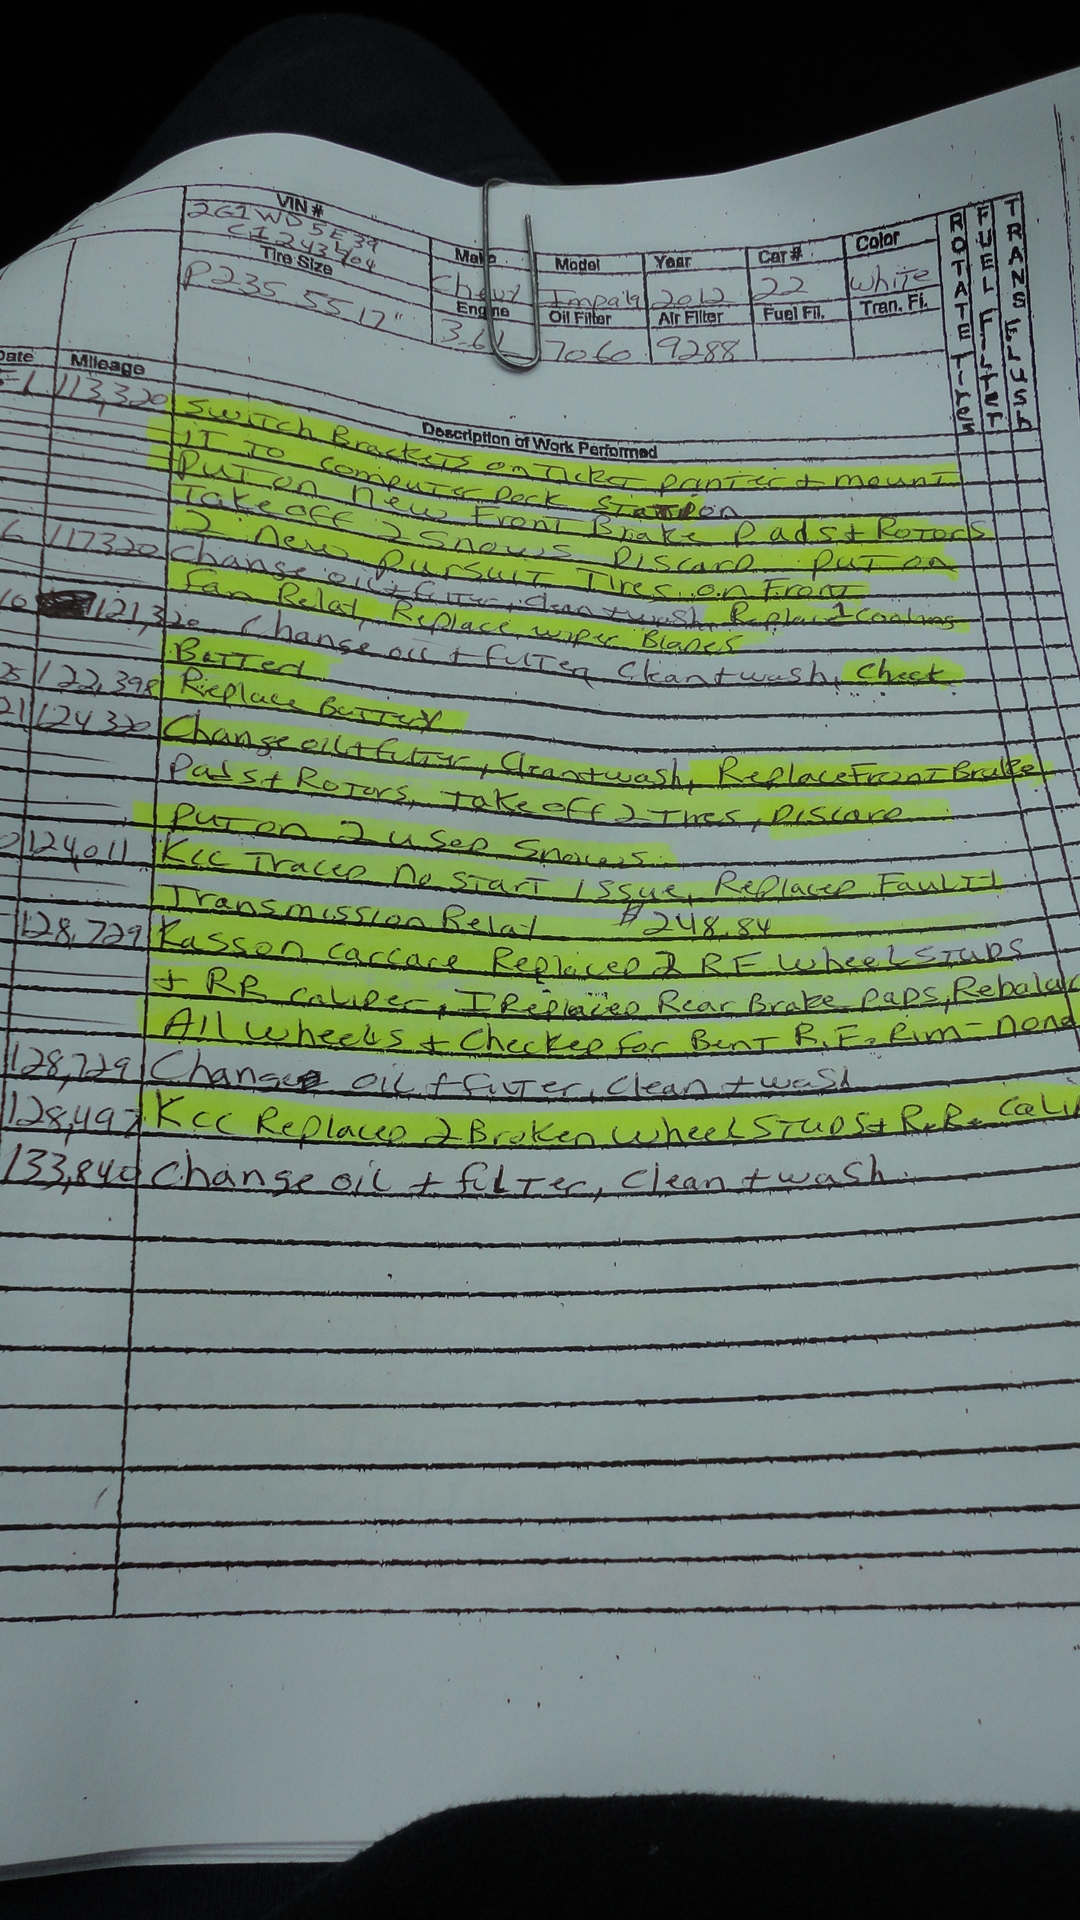 VIN #
2G1WD5E39
C1243404
Tire Size
P235 55 17"
Make Model Year Car # Color
Chevy Impala 2012 22 White
Engine Oil Filter Air Filter Fuel Fil. Tran. Fi.
3.6L 7060 9288
ROTATE TIRES
FUEL FILTER
TRANS FLUSH
Date Mileage
Description of Work Performed
113,320 Switch Brackets on Ticket printer + mount
it To computer Dock Station
Put on New Front Brake pads + Rotors
Take off 2 Snows Discard put on
2 new Pursuit Tires on Front
6 117320 Change oil + filter, clean + wash, Replace 1 Cooling
Fan Relay, Replace wiper Blades
10 121,320 Change oil + filter, Clean + wash, Check
Battery
25 122,398 Replace Battery
21 124320 Change oil + filter, Clean + wash, Replace Front Brake
Pads + Rotors, Take off 2 Tires, Discard
Put on 2 used Snows.
124011 Kcc Traced No Start issue, Replaced Faulty
Transmission Relay $248.84
128,729 Kasson carcare Replaced 2 RF wheel studs
+ RR caliper, I Replaced Rear Brake pads,
All wheels + Checked for Bent R.F. Rim - none
128,729 Change oil + filter, Clean + wash
128,497 Kcc Replaced 2 Broken wheel studs + R.R.
133,840 Change oil + filter, Clean + wash.